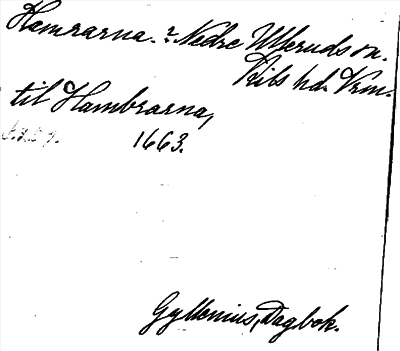 Hamrarna. i Nedre Ulleruds sn.
Kils hd. Vrm.
til Hambrarna,
1663.
Gyllenius, Dagbok.